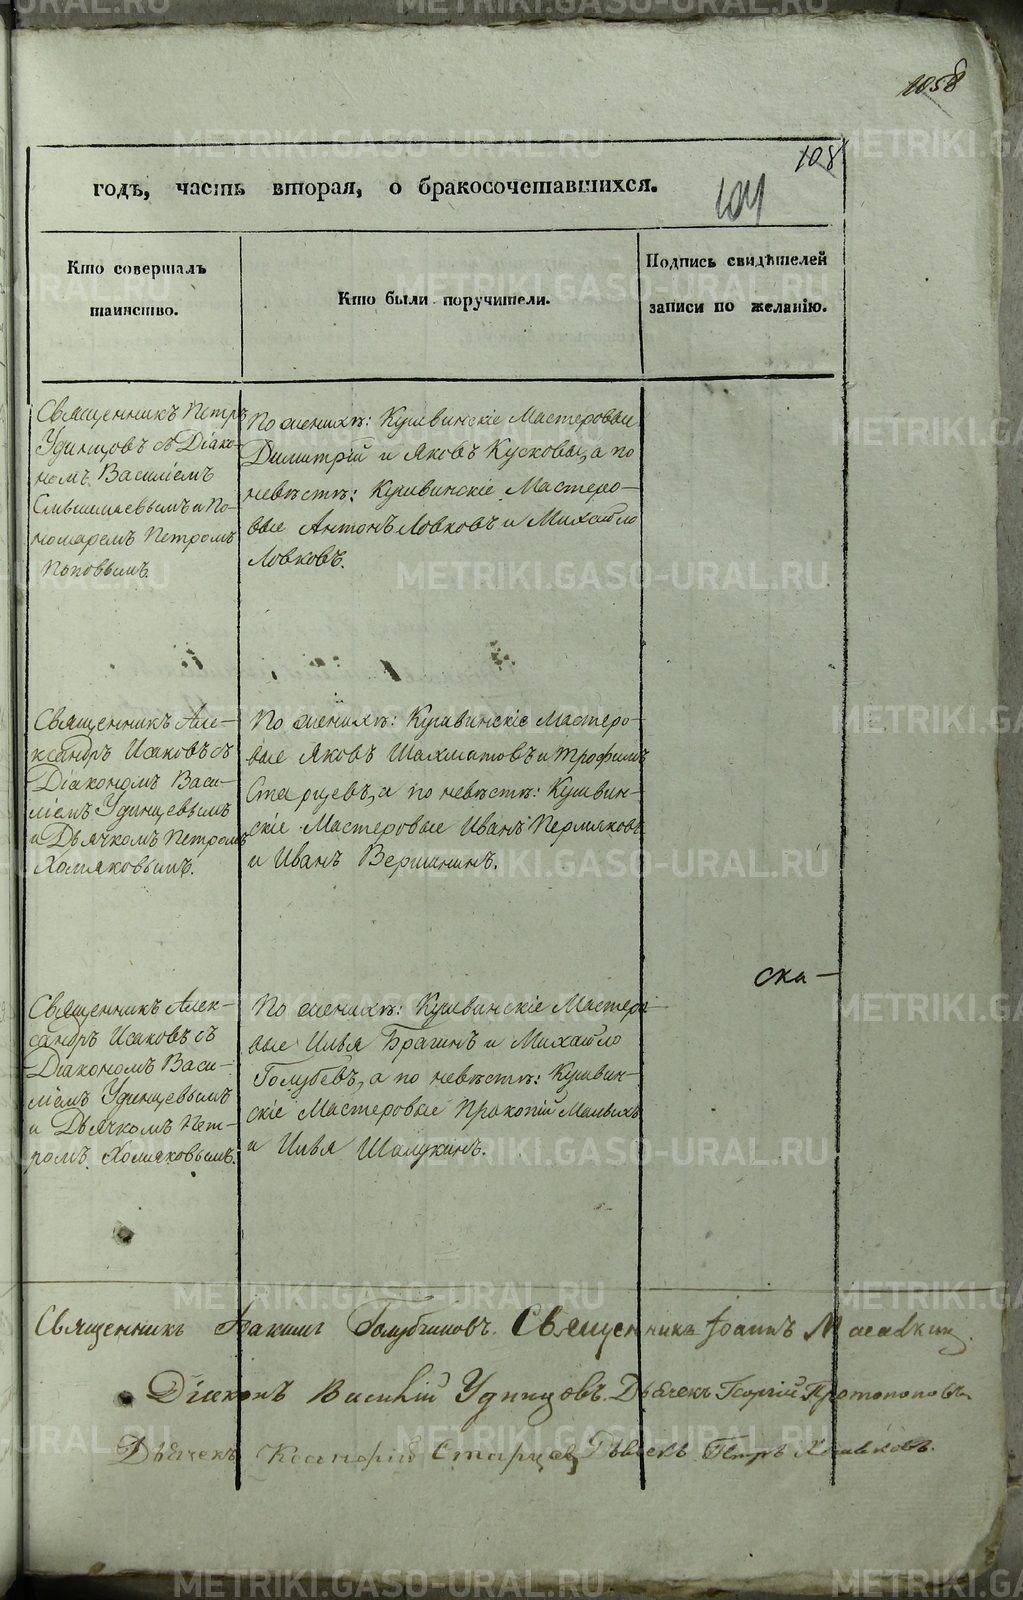 1058
108
104
годъ, часть вторая, о бракосочетавшихся.
Кто совершалъ
таинство.
Кто были поручители.
Подпись свидѣтелей
записи по желанію.
Священникъ Петръ
Удинцовъ съ Діако-
номъ Василіемъ
и По-
номаремъ Петромъ
Поповымъ.
По женихѣ: Кушвинскіе Мастеровые
Димитрій и Яковъ Кусковы, а по
невѣстѣ: Кушвинскіе Мастеро-
вые Антонъ Ловковъ и Михайло
Ловковъ.
Священникъ Але-
ксандръ Исаковъ съ
Діакономъ Васи-
ліемъ Удинцевымъ
и Дьячкомъ Петромъ
Хомяковымъ.
По женихѣ: Кушвинскіе Мастеро-
вые Яковъ Шахматовъ и Трофимъ
Старцевъ, а по невѣстѣ: Кушвин-
скіе Мастеровые Иванъ Пермяковъ
и Иванъ Вершининъ.
ска-
Священникъ Алек-
сандръ Исаковъ съ
Діакономъ Васи-
ліемъ Удинцевымъ
и Дьячкомъ Пет-
ромъ Хомяковымъ.
По женихѣ: Кушвинскіе Мастеро-
вые Илья Брагинъ и Михайло
Голубевъ, а по невѣстѣ: Кушвин-
скіе Мастеровые Прокопій Малыхъ
и Илья Шалукинъ.
Священникъ Іоакимъ Голубчиковъ. Священникъ Іоаннъ
Діаконъ Василій Удинцовъ. Дьячекъ Георгій Протопоповъ
Дьячекъ Старцевъ Дьячекъ Петръ Хомяковъ.
METRIKI.GASO-URAL.RU